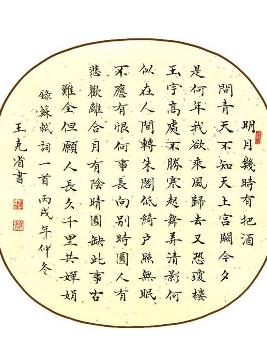 明月幾時有把酒
問青天不知天上宮闕今夕
是何年我欲乘風歸去又恐瓊樓
玉宇高處不勝寒起舞弄清影何
似在人間轉朱閣低綺戶照無眠
不應有恨何事長向別時圓人有
悲歡離合月有陰晴圓缺此事古
難全但願人長久千里共嬋娟
錄蘇軾詞一首丙戌年仲冬
王克省書